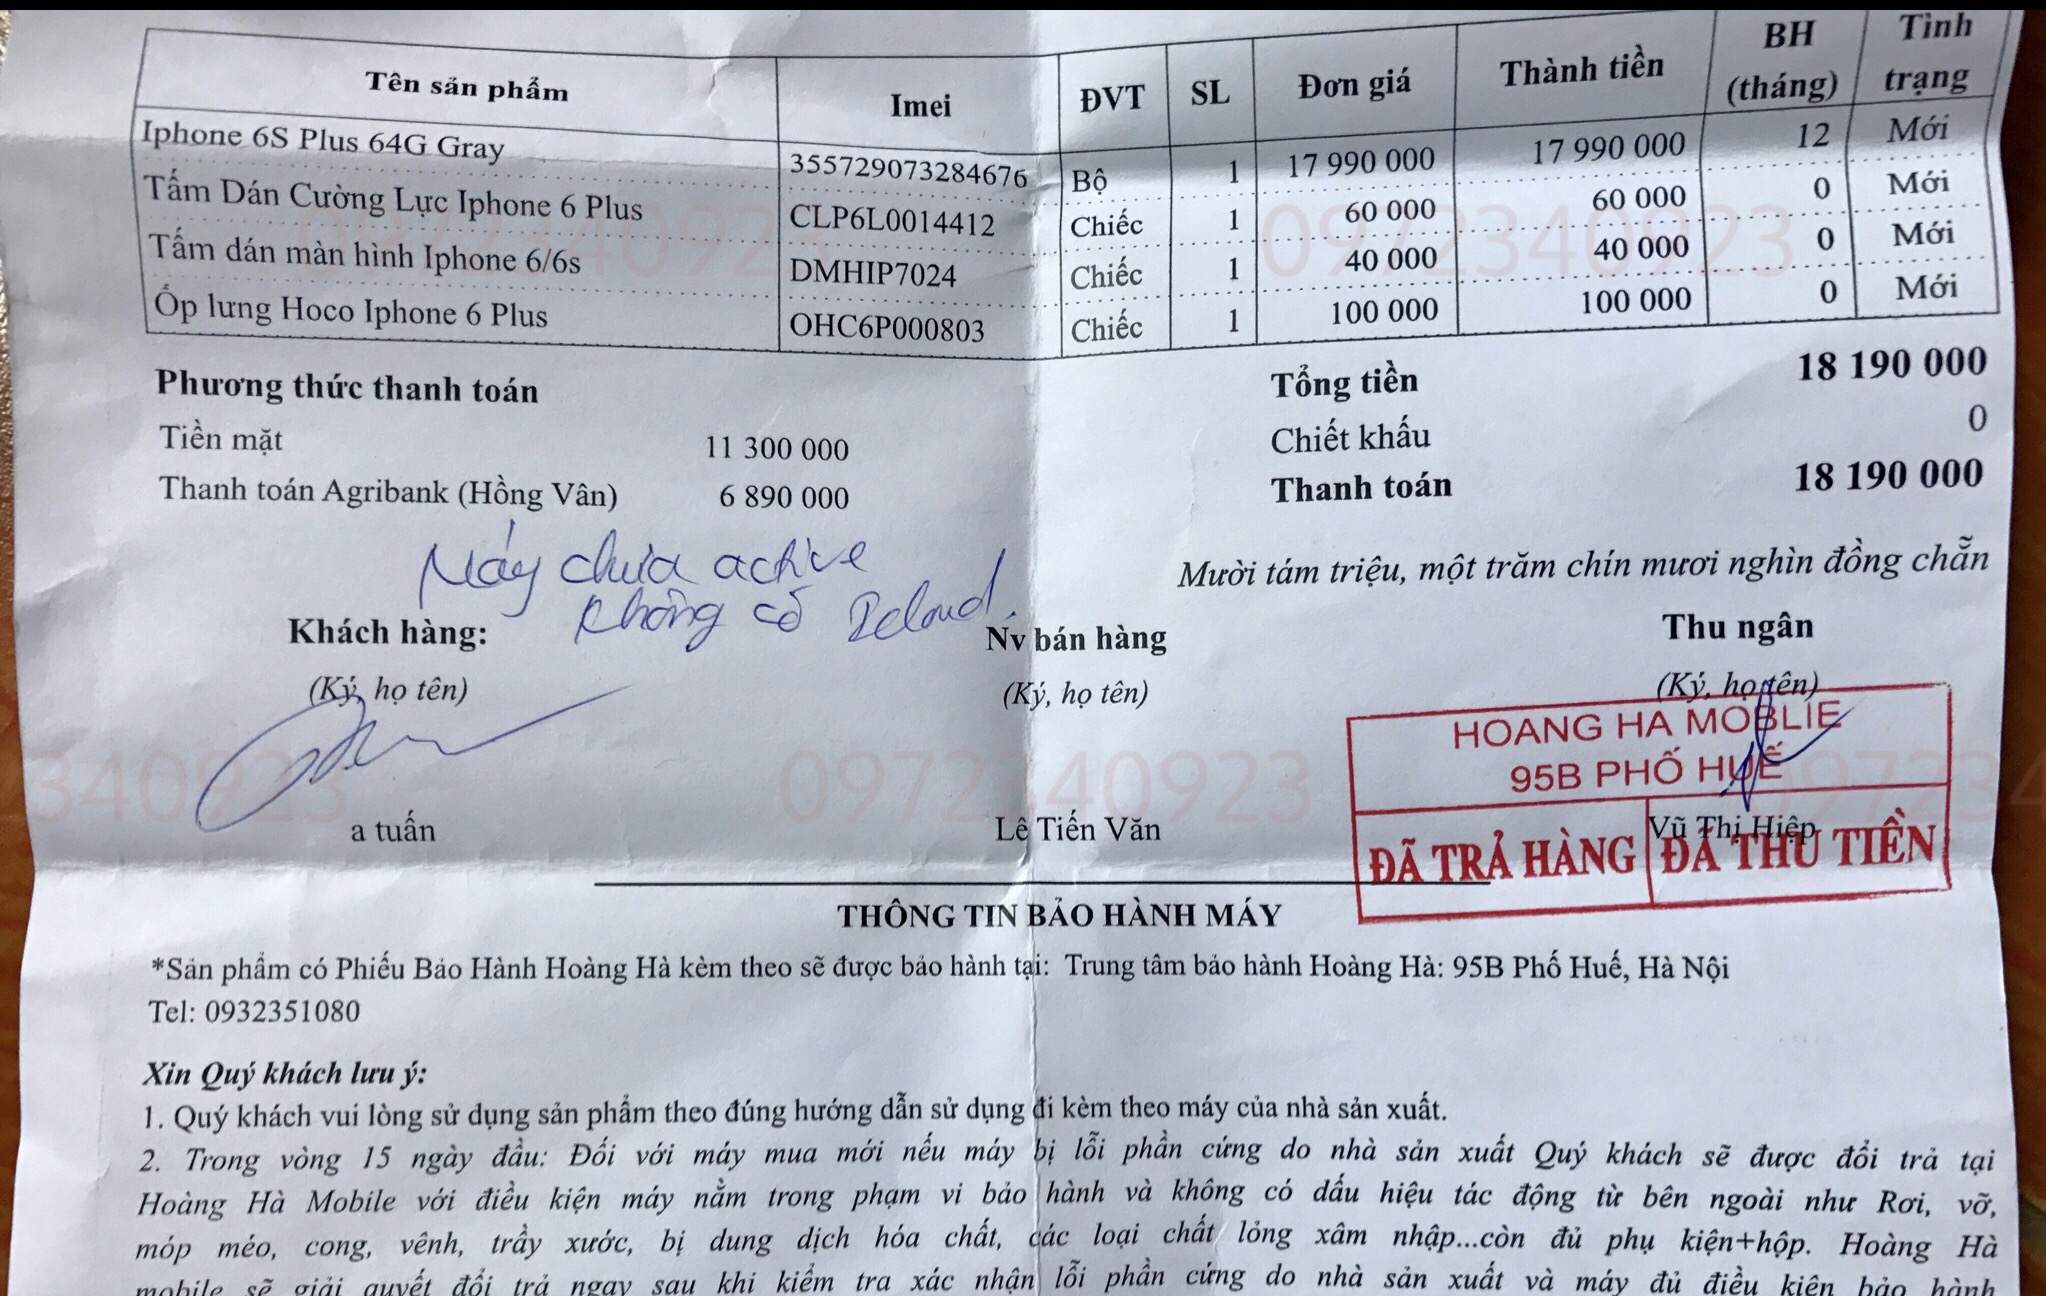 Tên sản phẩm Imei ĐVT SL Đơn giá Thành tiền BH (tháng) Tình trạng
Iphone 6S Plus 64G Gray 355729073284676 Bộ 1 17 990 000 17 990 000 12 Mới
Tấm Dán Cường Lực Iphone 6 Plus CLP6L0014412 Chiếc 1 60 000 60 000 0 Mới
Tấm dán màn hình Iphone 6/6s DMHIP7024 Chiếc 1 40 000 40 000 0 Mới
Ốp lưng Hoco Iphone 6 Plus OHC6P000803 Chiếc 1 100 000 100 000 0 Mới
0972340923 0972340923
Phương thức thanh toán Tổng tiền 18 190 000
Tiền mặt 11 300 000 Chiết khấu 0
Thanh toán Agribank (Hồng Vân) 6 890 000 Thanh toán 18 190 000
Máy chưa active
Mười tám triệu, một trăm chín mươi nghìn đồng chẵn
không có Icloud.
Khách hàng: Nv bán hàng Thu ngân
(Ký, họ tên) (Ký, họ tên) (Ký, họ tên)
HOANG HA MOBLIE
95B PHỐ HUẾ
340923 0972340923 097234
a tuấn Lê Tiến Văn Vũ Thị Hiệp
ĐÃ TRẢ HÀNG ĐÃ THU TIỀN
THÔNG TIN BẢO HÀNH MÁY
*Sản phẩm có Phiếu Bảo Hành Hoàng Hà kèm theo sẽ được bảo hành tại: Trung tâm bảo hành Hoàng Hà: 95B Phố Huế, Hà Nội
Tel: 0932351080
Xin Quý khách lưu ý:
1. Quý khách vui lòng sử dụng sản phẩm theo đúng hướng dẫn sử dụng đi kèm theo máy của nhà sản xuất.
2. Trong vòng 15 ngày đầu: Đối với máy mua mới nếu máy bị lỗi phần cứng do nhà sản xuất Quý khách sẽ được đổi trả tại
Hoàng Hà Mobile với điều kiện máy nằm trong phạm vi bảo hành và không có dấu hiệu tác động từ bên ngoài như Rơi, vỡ,
móp méo, cong, vênh, trầy xước, bị dung dịch hóa chất, các loại chất lỏng xâm nhập...còn đủ phụ kiện+hộp. Hoàng Hà
mobile sẽ giải quyết đổi trả ngay sau khi kiểm tra xác nhận lỗi phần cứng do nhà sản xuất và máy đủ điều kiện bảo hành